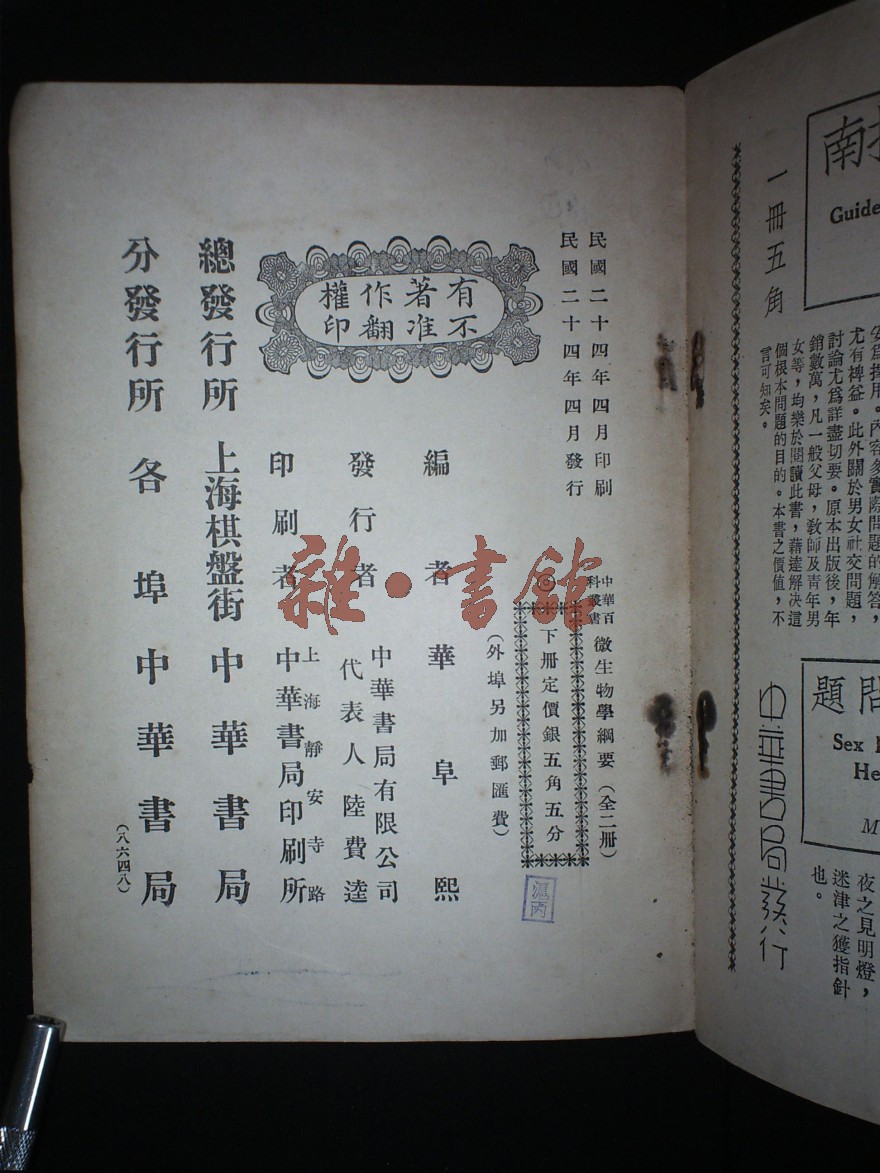 民國二十四年四月印刷
民國二十四年四月發行
有著作權
不准翻印
中華百科叢書
微生物學綱要（全二冊）
◎下冊定價銀五角五分
（外埠另加郵匯費）
編者 華阜熙
發行者 中華書局有限公司
代表人 陸費逵
印刷者 上海靜安寺路
中華書局印刷所
總發行所 上海棋盤街 中華書局
分發行所 各埠 中華書局
（八六四八）
滬丙
雜·書館
南
Guide
一冊五角
安爲採用。內容多實際問題的解答，
尤有裨益。此外關於男女社交問題，
討論尤爲詳盡切要。原本出版後，年
銷數萬，凡一般父母，教師及青年男
女等，均樂於閱讀此書，藉達解決這
個根本問題的目的。本書之價值，不
言可知矣。
問題
Sex
He
M
夜之見明燈，
迷津之獲指針
也。
中華書局發行